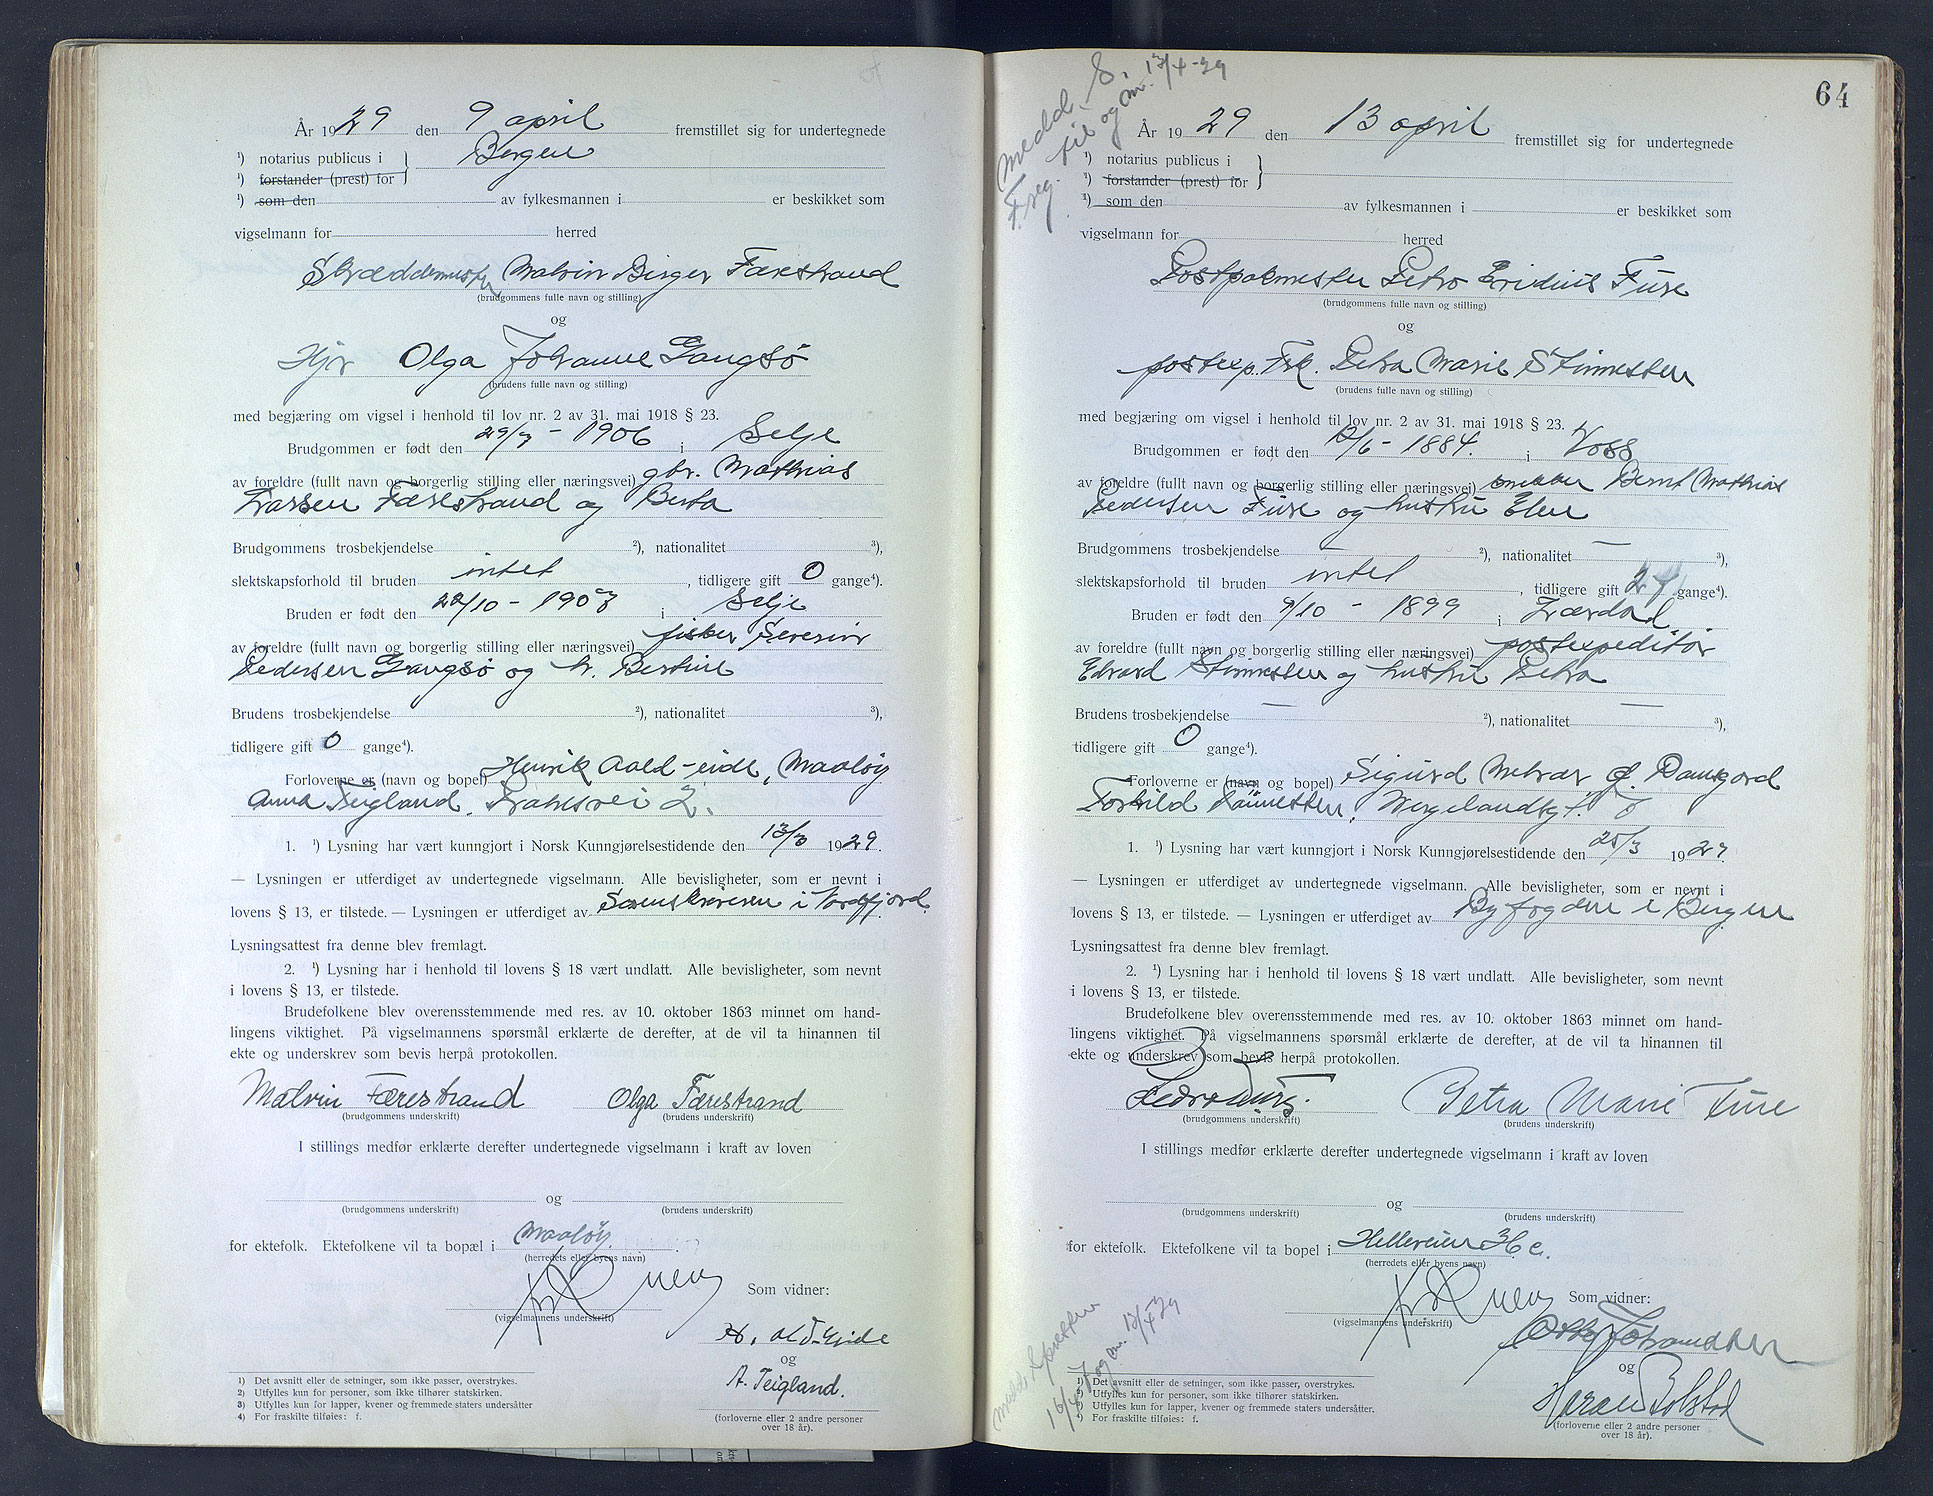 År 1929 den 9 april fremstillet sig for undertegnede
¹) notarius publicus i Bergen
¹) forstander (prest) for
¹) som den av fylkesmannen i er beskikket som
vigselmann for herred
Skræddermester Malvin Birger Færestrand
(brudgommens fulle navn og stilling)
og
Hjv Olga Johanne Gangsö
(brudens fulle navn og stilling)
med begjæring om vigsel i henhold til lov nr. 2 av 31. mai 1918 § 23.
Brudgommen er født den 29/7 - 1906 i Selje
av foreldre (fullt navn og borgerlig stilling eller næringsvei) gbr. Mathias
Larsen Færestrand og Berta
Brudgommens trosbekjendelse ²), nationalitet ³),
slektskapsforhold til bruden intet, tidligere gift 0 gange⁴).
Bruden er født den 22/10 - 1907 i Selje
av foreldre (fullt navn og borgerlig stilling eller næringsvei) fisker Severin
Pedersen Gangsö og h. Bertine
Brudens trosbekjendelse ²), nationalitet ³),
tidligere gift 0 gange⁴).
Forloverne er (navn og bopel) Henrik Aold-eide, Maaløy
Anna Teigland. 2.
1. ¹) Lysning har vært kunngjort i Norsk Kunngjørelsestidende den 13/3 1929.
— Lysningen er utferdiget av undertegnede vigselmann. Alle bevisligheter, som er nevnt i
lovens § 13, er tilstede. — Lysningen er utferdiget av Sorenskriveren i Nordfjord
Lysningsattest fra denne blev fremlagt.
2. ¹) Lysning har i henhold til lovens § 18 vært undlatt. Alle bevisligheter, som nevnt
i lovens § 13, er tilstede.
Brudefolkene blev overensstemmende med res. av 10. oktober 1863 minnet om hand-
lingens viktighet. På vigselmannens spørsmål erklærte de derefter, at de vil ta hinannen til
ekte og underskrev som bevis herpå protokollen.
Malvin Færestrand Olga Færestrand
(brudgommens underskrift) (brudens underskrift)
I stillings medfør erklærte derefter undertegnede vigselmann i kraft av loven
og
(brudgommens underskrift) (brudens underskrift)
for ektefolk. Ektefolkene vil ta bopæl i Maaløy.
(herredets eller byens navn)
Som vidner:
(vigselmannens underskrift)
H. Old-Eide
og
A. Teigland.
(forloverne eller 2 andre personer
over 18 år).
1) Det avsnitt eller de setninger, som ikke passer, overstrykes.
2) Utfylles kun for personer, som ikke tilhører statskirken.
3) Utfylles kun for lapper, kvener og fremmede staters undersåtter
4) For fraskilte tilføies: f.
64
Medd. S. 13/4-29
F.reg. til og om.
År 1929 den 13 april fremstillet sig for undertegnede
¹) notarius publicus i
¹) forstander (prest) for
¹) som den av fylkesmannen i er beskikket som
vigselmann for herred
Postpakmester Petro Eridius Fure
(brudgommens fulle navn og stilling)
og
postexp. Frk. Petra Marie Stinnesten
(brudens fulle navn og stilling)
med begjæring om vigsel i henhold til lov nr. 2 av 31. mai 1918 § 23.
Brudgommen er født den 12/6 - 1884. i Voss
av foreldre (fullt navn og borgerlig stilling eller næringsvei) snekker Bernt Mathias
Pedersen Fure og hustru Elen
Brudgommens trosbekjendelse — ²), nationalitet — ³),
slektskapsforhold til bruden intet, tidligere gift 2 f gange⁴).
Bruden er født den 9/10 - 1899 i Lærdal
av foreldre (fullt navn og borgerlig stilling eller næringsvei) postexpeditör
Edvard Stinnesten og hustru Petra
Brudens trosbekjendelse — ²), nationalitet — ³),
tidligere gift 0 gange⁴).
Forloverne er (navn og bopel) Sigurd Damsgård
Torhild Sünnesten, Wergelandsgt. 8
1. ¹) Lysning har vært kunngjort i Norsk Kunngjørelsestidende den 25/3 1929.
— Lysningen er utferdiget av undertegnede vigselmann. Alle bevisligheter, som er nevnt i
lovens § 13, er tilstede. — Lysningen er utferdiget av Byfogden i Bergen
Lysningsattest fra denne blev fremlagt.
2. ¹) Lysning har i henhold til lovens § 18 vært undlatt. Alle bevisligheter, som nevnt
i lovens § 13, er tilstede.
Brudefolkene blev overensstemmende med res. av 10. oktober 1863 minnet om hand-
lingens viktighet. På vigselmannens spørsmål erklærte de derefter, at de vil ta hinannen til
ekte og underskrev som bevis herpå protokollen.
Pedro Fure. Petra Marie Fure
(brudgommens underskrift) (brudens underskrift)
I stillings medfør erklærte derefter undertegnede vigselmann i kraft av loven
og
(brudgommens underskrift) (brudens underskrift)
for ektefolk. Ektefolkene vil ta bopel i Helleveien 36 c.
(herredets eller byens navn)
Som vidner:
(vigselmannens underskrift)
Otto Johannesen
og
Harald Bolstad
(forloverne eller 2 andre personer
over 18 år).
1) Det avsnitt eller de setninger, som ikke passer, overstrykes.
2) Utfylles kun for personer, som ikke tilhører statskirken.
3) Utfylles kun for lapper, kvener og fremmede staters undersåtter.
4) For fraskilte tilføies: f.